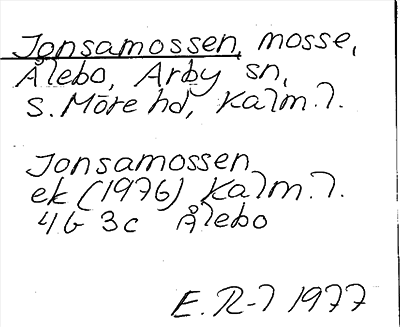 Jonsamossen, mosse,
Ålebo, Arby sn,
S. Möre hd, Kalm. l.
Jonsamossen
ek (1976) Kalm. l.
4G 3c Ålebo
E. R-l 1977